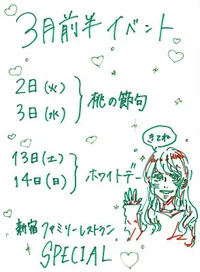 3月前半イベント
2日(火)
3日(水)
桃の節句
13日(土)
14日(日)
ホワイトデー
きてね
新宿ファミリーレストラン
SPECIAL